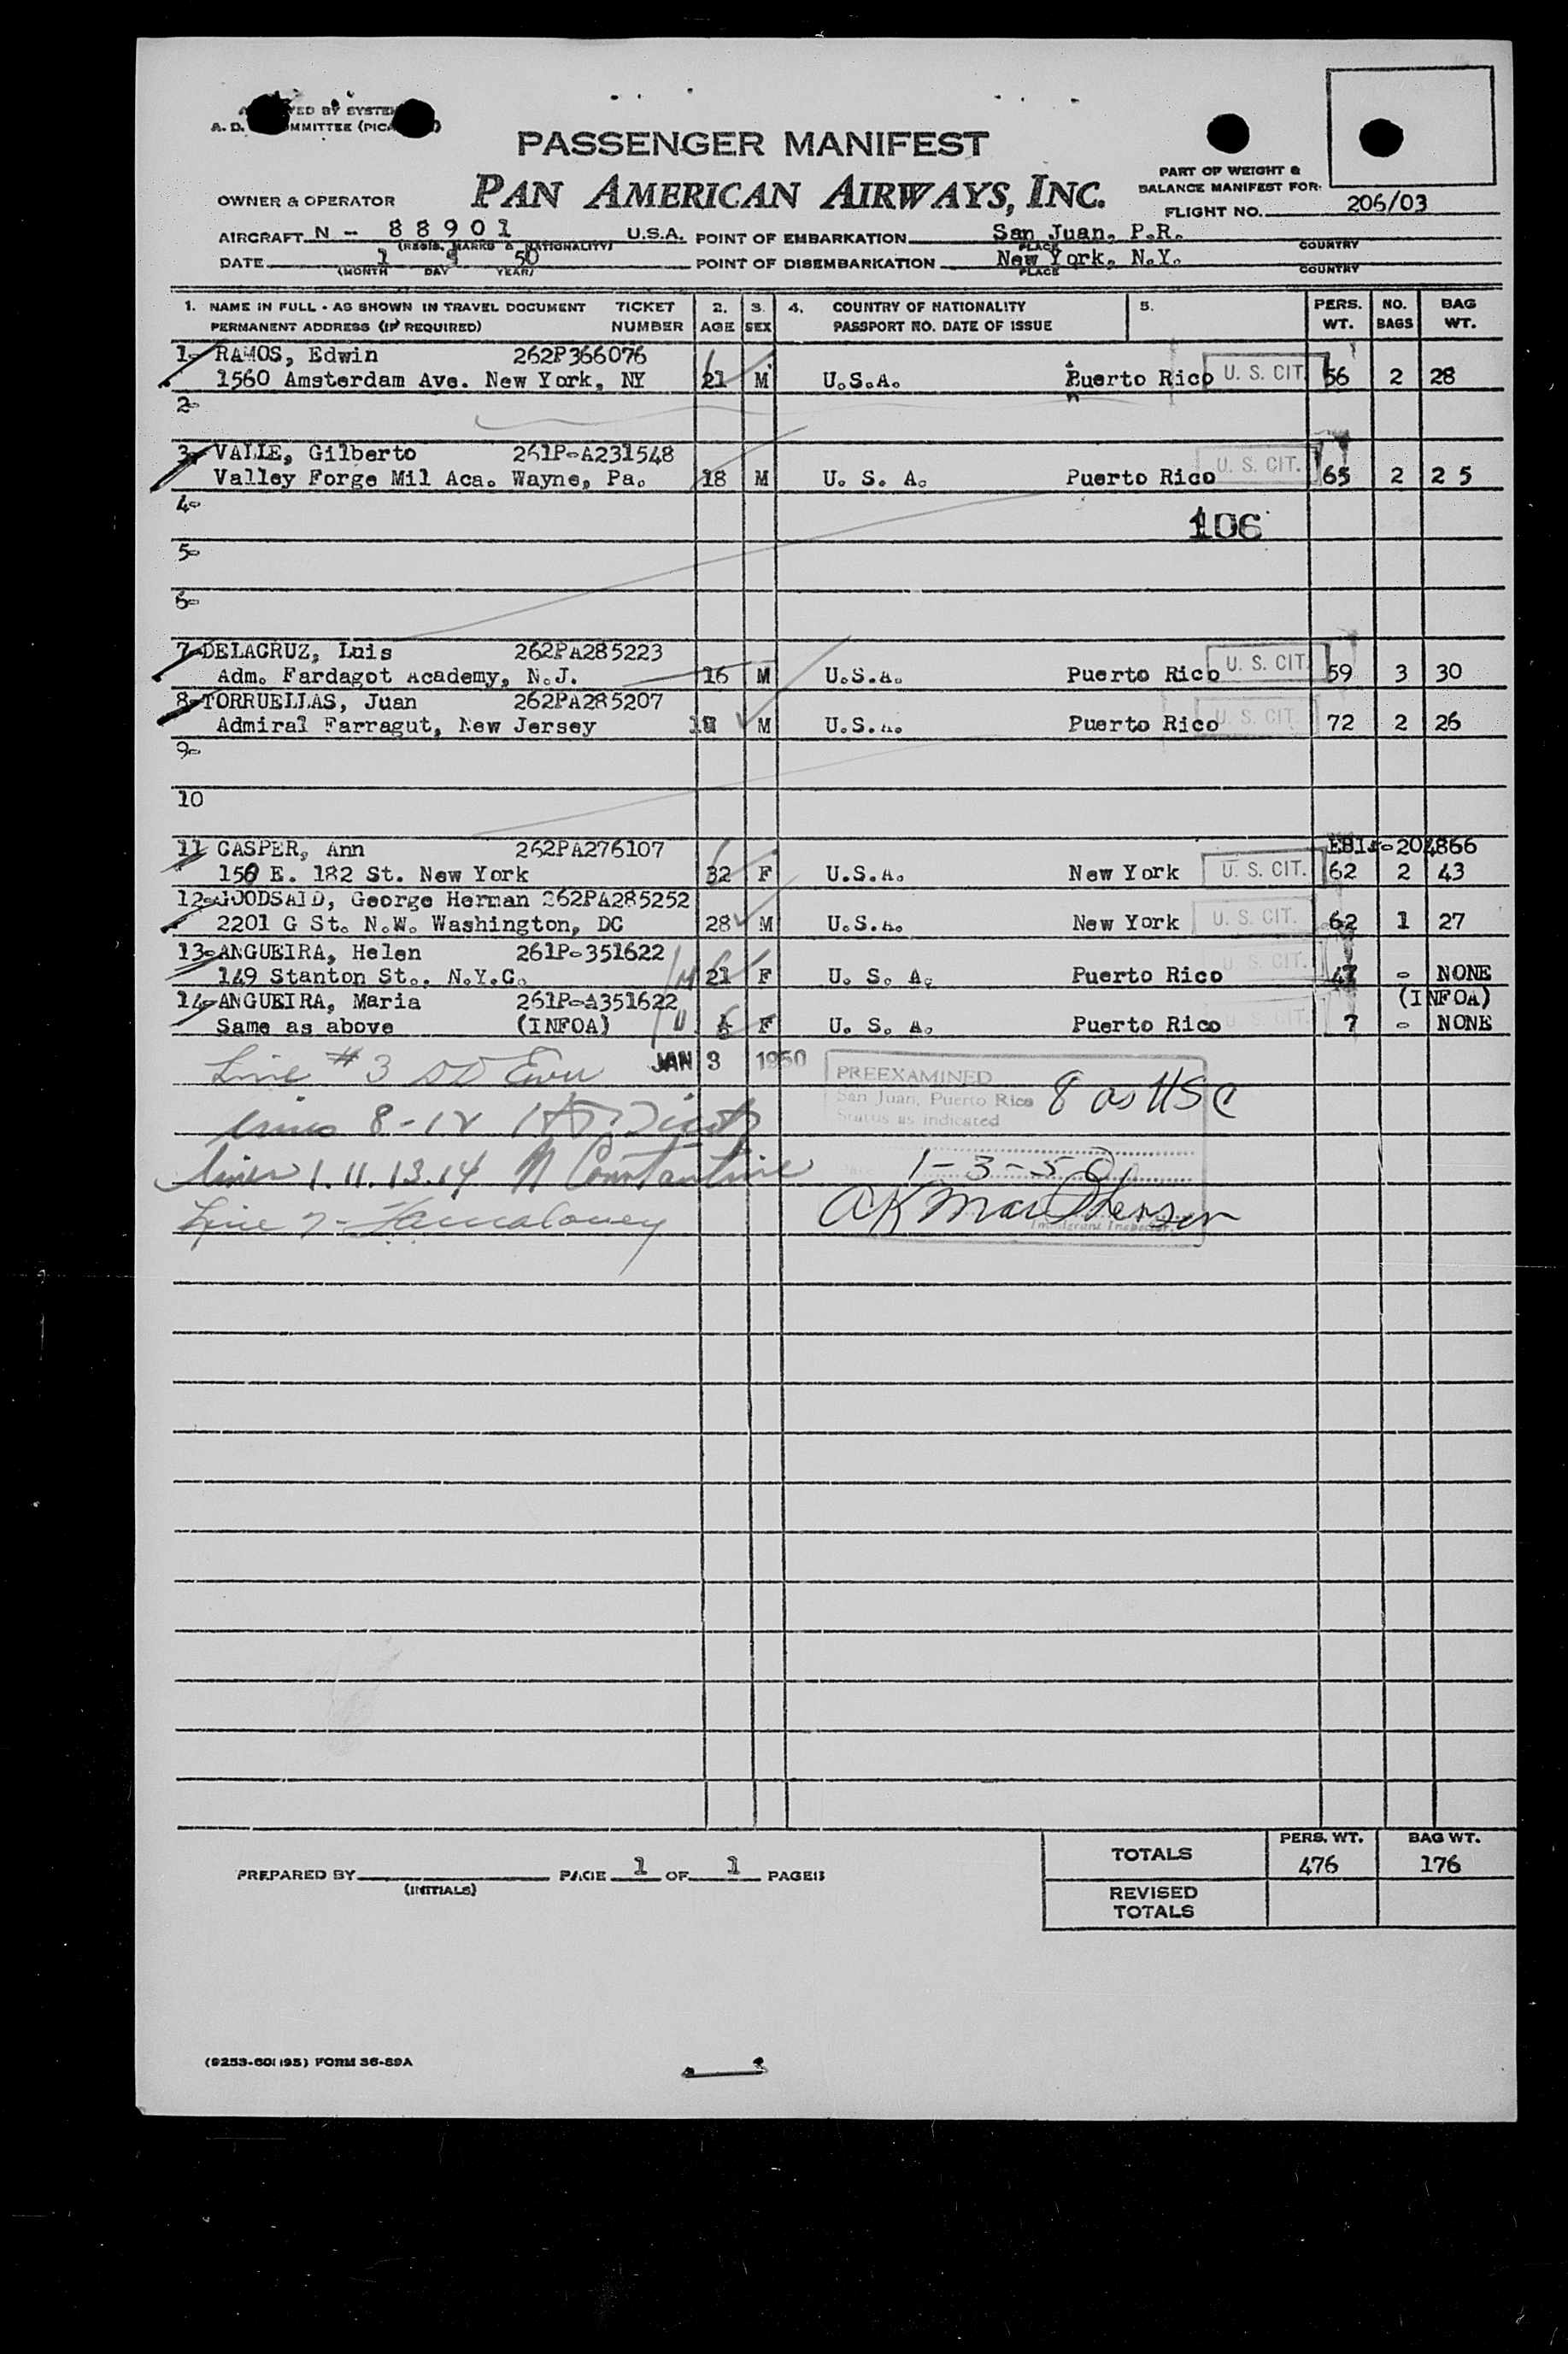 PASSENGER MANIFEST
PAN AMERICAN AIRWAYS, INC.
PART OF WEIGHT &
BALANCE MANIFEST FOR:
FLIGHT NO. 206/03
OWNER & OPERATOR
AIRCRAFT N - 88901 U.S.A. POINT OF EMBARKATION San Juan, P.R.
(REGIS. MARKS & NATIONALITY) PLACE COUNTRY
DATE 1 3 50 POINT OF DISEMBARKATION New York, N.Y.
(MONTH DAY YEAR) PLACE COUNTRY
1. NAME IN FULL - AS SHOWN IN TRAVEL DOCUMENT TICKET 2. 3. 4. COUNTRY OF NATIONALITY 5. PERS. NO. BAG
PERMANENT ADDRESS (IF REQUIRED) NUMBER AGE SEX PASSPORT NO. DATE OF ISSUE WT. BAGS WT.
1- RAMOS, Edwin 262P366076
1560 Amsterdam Ave. New York, NY 21 M U.S.A. Puerto Rico U. S. CIT. 56 2 28
2-
3- VALLE, Gilberto 261P-A231548
Valley Forge Mil Aca. Wayne, Pa. 18 M U. S. A. Puerto Rico U. S. CIT. 65 2 2 5
4-
106
5-
6-
7-DELACRUZ, Luis 262PA285223
Adm. Fardagot Academy, N.J. 16 M U.S.A. Puerto Rico U. S. CIT. 59 3 30
8-TORRUELLAS, Juan 262PA285207
Admiral Farragut, New Jersey M U.S.A. Puerto Rico U. S. CIT. 72 2 26
9-
10
11 CASPER, Ann 262PA276107
150 E. 182 St. New York 32 F U.S.A. New York U. S. CIT. 62 2 43
12-GOODSAID, George Herman 262PA285252
2201 G St. N.W. Washington, DC 28 M U.S.A. New York U. S. CIT. 62 1 27
13-ANGUEIRA, Helen 261P-351622
149 Stanton St.. N.Y.C. 21 F U. S. A. Puerto Rico U. S. CIT. - NONE
14-ANGUEIRA, Maria 261P-A351622 (INFOA)
Same as above (INFOA) F U. S. A. Puerto Rico U. S. CIT. 7 - NONE
Line #3
JAN 3 1950
PREEXAMINED
San Juan, Puerto Rico 8 as USC
Status as indicated
Lines 8-12
Lines 1.11.13.14 N Constantine
1-3-50
Line 7-
Immigrant Inspector
TOTALS PERS. WT. BAG WT.
476 176
PREPARED BY PAGE 1 OF 1 PAGES
(INITIALS)
REVISED
TOTALS
FORM 36-89A